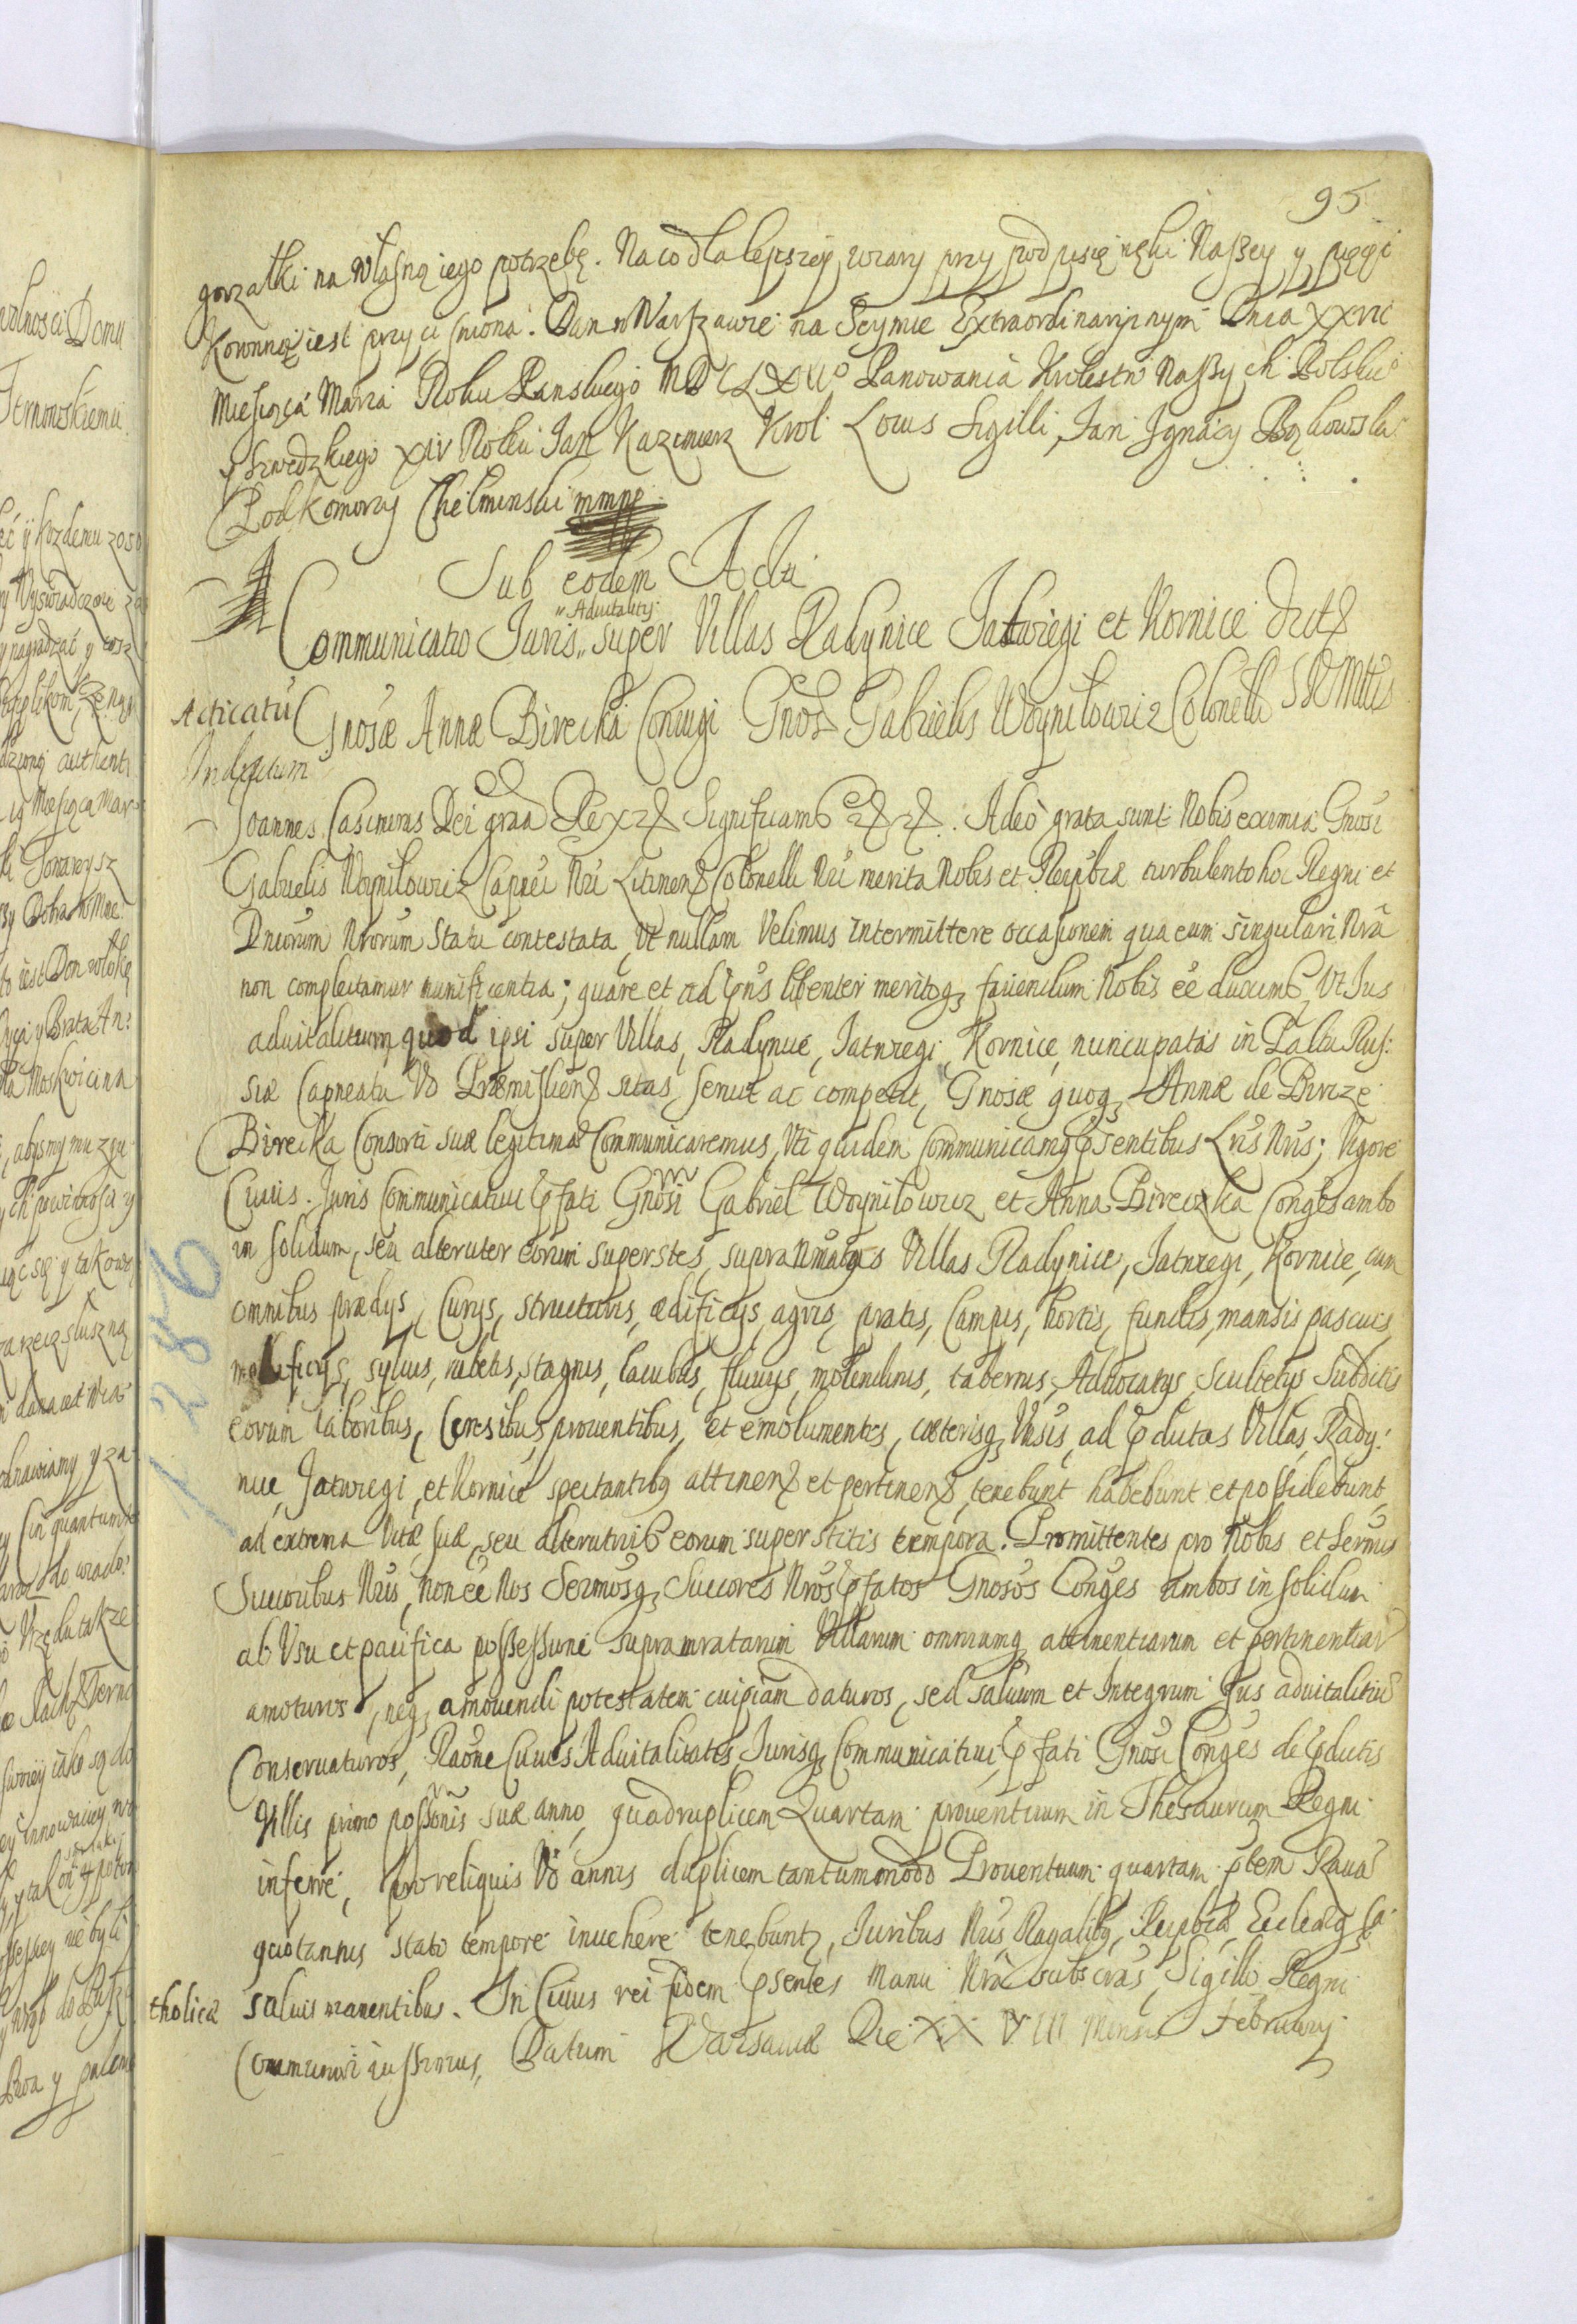 95
gorzałki na własną iego potrzebę. Na co dla lepszey wiary przy podpisie ręki Naszey y pieczęć
Koronną iest przyciśniona. Dan w Warszawie na Seymie Extraordinaryinym Dnia XXVII
Miesiąca Marca Roku Panskiego MDCLXII° Panowania Krolestw Naszych Polskie°
y Szwedzkiego XIV Roku Jan Kazimierz Krol Locus Sigilli, Jan Ignacy Bąkowski
Podkomorzy Chelminski mmpp
Sub eodem Actu
„Advitality
Communicatio Juris „ super Villas Radynice Jatwięgi et Kornice dict
Gnosæ Annæ Birecka Coniugi Gnos Gabrielis Woyniłowicz Colonelli SRMttis
Acticatū
Inductum
Joannes Casimirus Dei graa Rex Significam. Adeò grata sunt Nobis eximia Gnosi
Gabrielis Woyniłowicz Capnei Nri Litinen Colonelli Nri merita Nobis et Reipblæ turbulento hoc Regni et
Dniorum Nrorum Statu contestata, Vt nullam Velimus intermittere occasionem qua eum singulari Nra
non complectamur munificentia; quare et ad pns libenter meritoq fauendum Nobis ee duximus, Vt Jus
aduitalitium quod ipsi super Villas, Radynice, Jatwięgi, Kornice, nuncupatas in Pałtu Rus:
siæ Capneatu Vo Præmislien sitas, seruit ac competit, Gnosæ quoq Annæ de Bircze
Birecka Consorti suæ legitimæ Communicaremus, Vti quidem Communicamq psentibus Lris Nris; Vigore
Cuius Juris Communicatiui pfati Gnosi Gabriel Woyniłowicz et Anna Bireczka Conges ambo
in solidum, seu alteruter eorum superstes, supranmatas Villas Radynice, Jatwięgi, Kornice, cum
omnibus prædys, Curys, structuris, ædificys, agris, pratis, Campis, hortis, fundis, mansis pascuis,
mellificys, syluis, rubetis, stagnis, lacubus, fluuys, molendinis, tabernis, Aduocatys, Scultetys Subditis
eorum laboribus, Censibus, prouentibus, et emolumentis, cæterisq Vnsis, ad pdictas Villas, Rady:
nice, Jatwięgi, et Kornice spectantibq attinen et pertinen, tenebunt habebunt et possidebunt,
ad extrema Vitæ suæ, seu alterutrius eorum superstitis tempora. Promittentes pro Nobis et Sermis
Succoribus Nris, non ee Nos Sermosq Succores Nros pfatos Gnosos Conges ambos in solidum
ab Vsu et pacifica possessione supranratarum Villarum omniumq attinentiarum et pertinentiar
amoturos, neq amouendi potestatem cuipiam daturos, sed saluum et Integrum Jus aduitalitiū
Conseruaturos, Raone Cuius Aduitalitatis, Jurisq Communicatiui, pfati Gnosi Conges de pdictis
Villis primo possonis suæ anno, quadruplicem Quartam prouentuum in Thesaurum Regni
inferre, pro reliquis Vo annis duplicem tantummodo Prouentuum quartam ptem Rauā
quotannis stato tempore inuehere tenebuntr, Juribus Nris Regalibq, Reipblæ, Eccleæq Ca-
tholicæ saluis manentibus. In Cuius rei fidem psentes manu Nra subscras, Sigillo Regni
Communiri iussimus, Datum Warsauiæ Die XXVIII Mensis February
1286